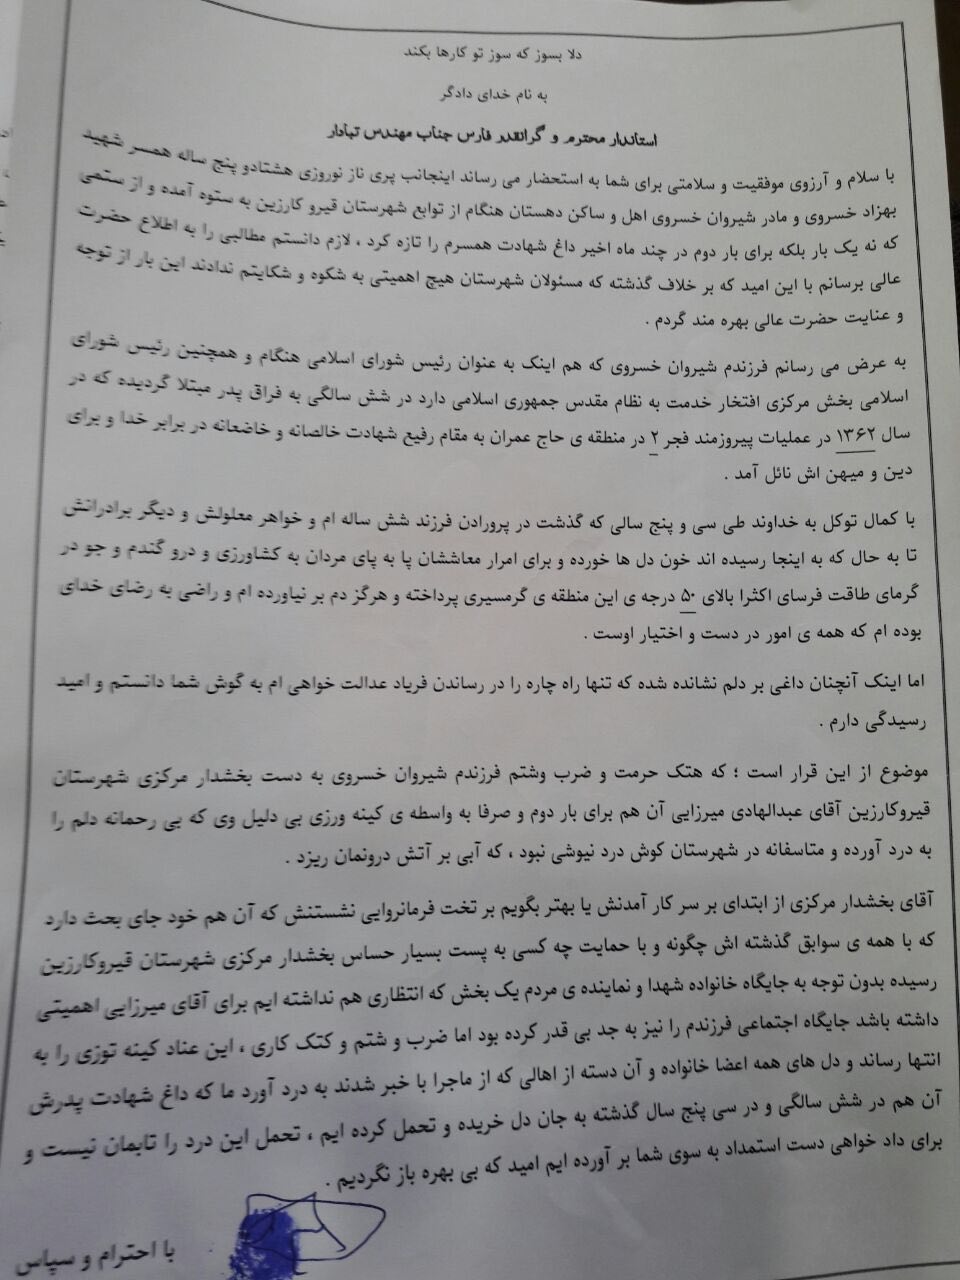 دلا بسوز که سوز تو کارها بکند
به نام خدای دادگر
استاندار محترم و گرانقدر فارس جناب مهندس تبادار
با سلام و آرزوی موفقیت و سلامتی برای شما به استحضار می رساند اینجانب پری ناز نوروزی هشتادو پنج ساله همسر شهید
بهزاد خسروی و مادر شیروان خسروی اهل و ساکن دهستان هنگام از توابع شهرستان قیرو کارزین به ستوه آمده و از ستمی
که نه یک بار بلکه برای بار دوم در چند ماه اخیر داغ شهادت همسرم را تازه کرد ، لازم دانستم مطالبی را به اطلاع حضرت
عالی برسانم با این امید که بر خلاف گذشته که مسئولان شهرستان هیچ اهمیتی به شکوه و شکایتم ندادند این بار از توجه
و عنایت حضرت عالی بهره مند گردم .
به عرض می رسانم فرزندم شیروان خسروی که هم اینک به عنوان رئیس شورای اسلامی هنگام و همچنین رئیس شورای
اسلامی بخش مرکزی افتخار خدمت به نظام مقدس جمهوری اسلامی دارد در شش سالگی به فراق پدر مبتلا گردیده که در
سال ۱۳۶۲ در عملیات پیروزمند فجر ۲ در منطقه ی حاج عمران به مقام رفیع شهادت خالصانه و خاضعانه در برابر خدا و برای
دین و میهن اش نائل آمد .
با کمال توکل به خداوند طی سی و پنج سالی که گذشت در پروردن فرزند شش ساله ام و خواهر معلولش و دیگر برادرانش
تا به حال که به اینجا رسیده اند خون دل ها خورده و برای امرار معاششان پا به پای مردان به کشاورزی و درو گندم و جو در
گرمای طاقت فرسای اکثرا بالای ۵۰ درجه ی این منطقه ی گرمسیری پرداخته و هرگز دم بر نیاورده ام و راضی به رضای خدای
بوده ام که همه ی امور در دست و اختیار اوست .
اما اینک آنچنان داغی بر دلم نشانده شده که تنها راه چاره را در رساندن فریاد عدالت خواهی ام به گوش شما دانستم و امید
رسیدگی دارم .
موضوع از این قرار است ؛ که هتک حرمت و ضرب وشتم فرزندم شیروان خسروی به دست بخشدار مرکزی شهرستان
قیروکارزین آقای عبدالهادی میرزایی آن هم برای بار دوم و صرفا به واسطه ی کینه ورزی بی دلیل وی که بی رحمانه دلم را
به درد آورده و متاسفانه در شهرستان کوش درد نیوشی نبود ، که آبی بر آتش درونمان ریزد .
آقای بخشدار مرکزی از ابتدای بر سر کار آمدنش یا بهتر بگویم بر تخت فرمانروایی نشستنش که آن هم خود جای بحث دارد
که با همه ی سوابق گذشته اش چگونه و با حمایت چه کسی به پست بسیار حساس بخشدار مرکزی شهرستان قیروکارزین
رسیده بدون توجه به جایگاه خانواده شهدا و نماینده ی مردم یک بخش که انتظاری هم نداشته ایم برای آقای میرزایی اهمیتی
داشته باشد جایگاه اجتماعی فرزندم را نیز به جد بی قدر کرده بود اما ضرب و شتم و کتک کاری ، این عناد کینه توزی را به
انتها رساند و دل های همه اعضا خانواده و آن دسته از اهالی که از ماجرا با خبر شدند به درد آورد ما که داغ شهادت پدرش
آن هم در شش سالگی و در سی پنج سال گذشته به جان دل خریده و تحمل کرده ایم ، تحمل این درد را تابمان نیست و
برای داد خواهی دست استمداد به سوی شما بر آورده ایم امید که بی بهره باز نگردیم .
با احترام و سپاس